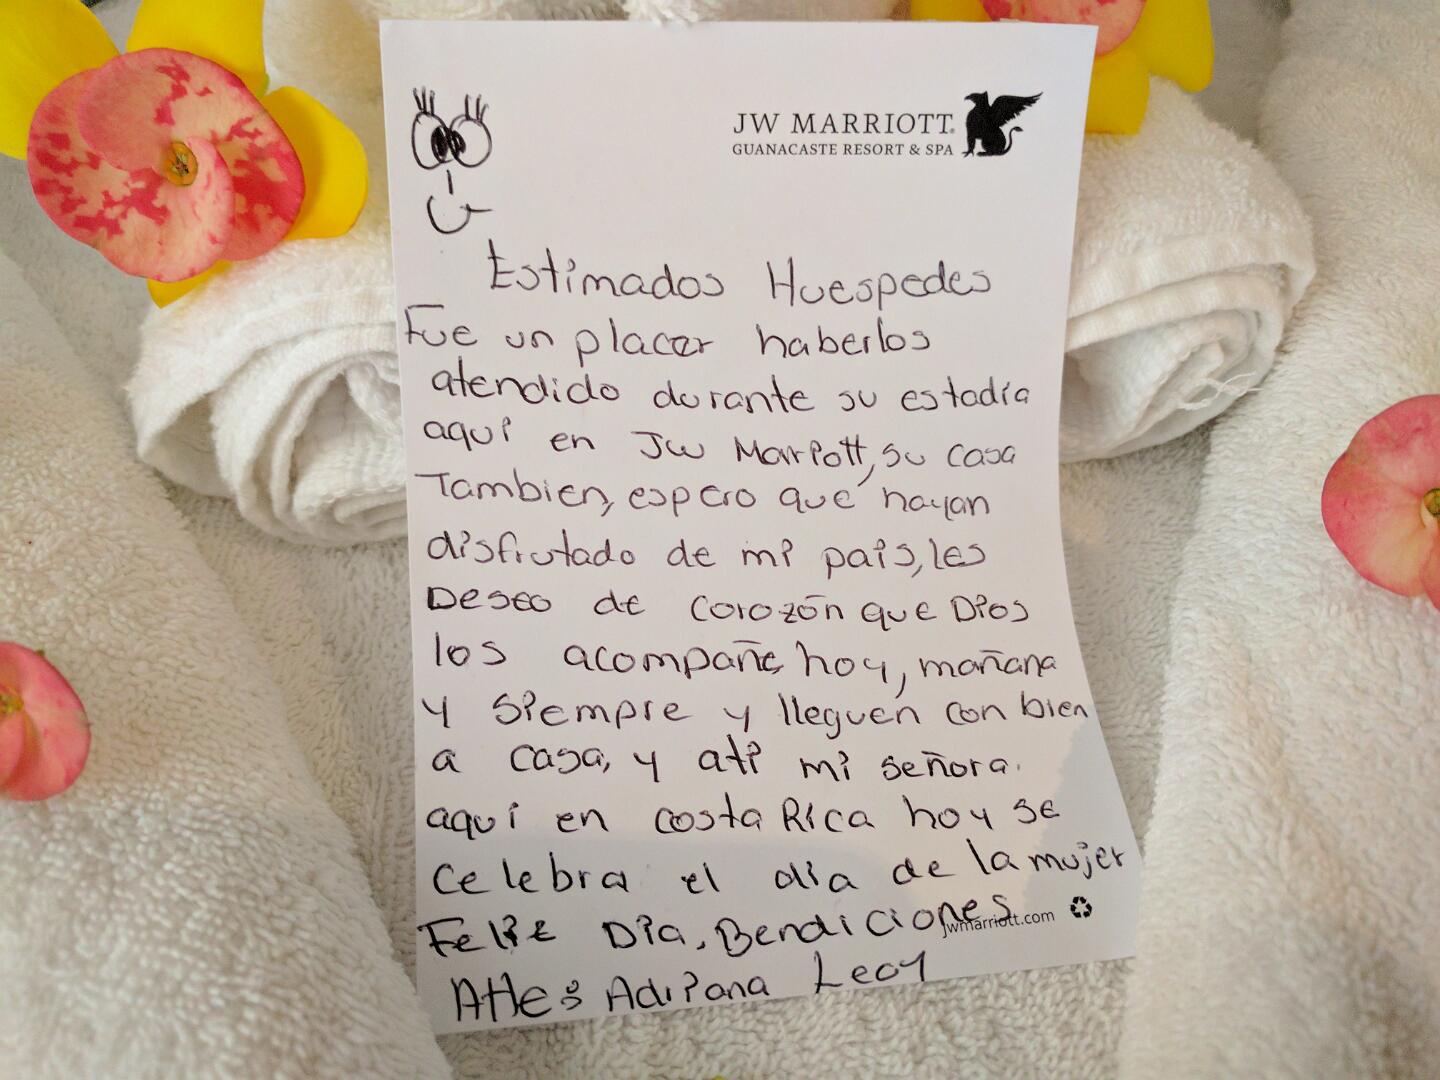 JW MARRIOTT®
GUANACASTE RESORT & SPA
Estimados Huespedes
Fue un placer haberlos
atendido durante su estadía
aquí en JW Marriott, su casa
Tambien, espero que hayan
disfrutado de mi pais, les
Deseo de corozón que Dios
los acompañe hoy, mañana
y siempre y lleguen con bien
a casa, y ati mi señora.
aquí en costa Rica hoy se
celebra el día de la mujer
Feliz Día, Bendiciones
jwmarriott.com
Atte: Adriana Leoy